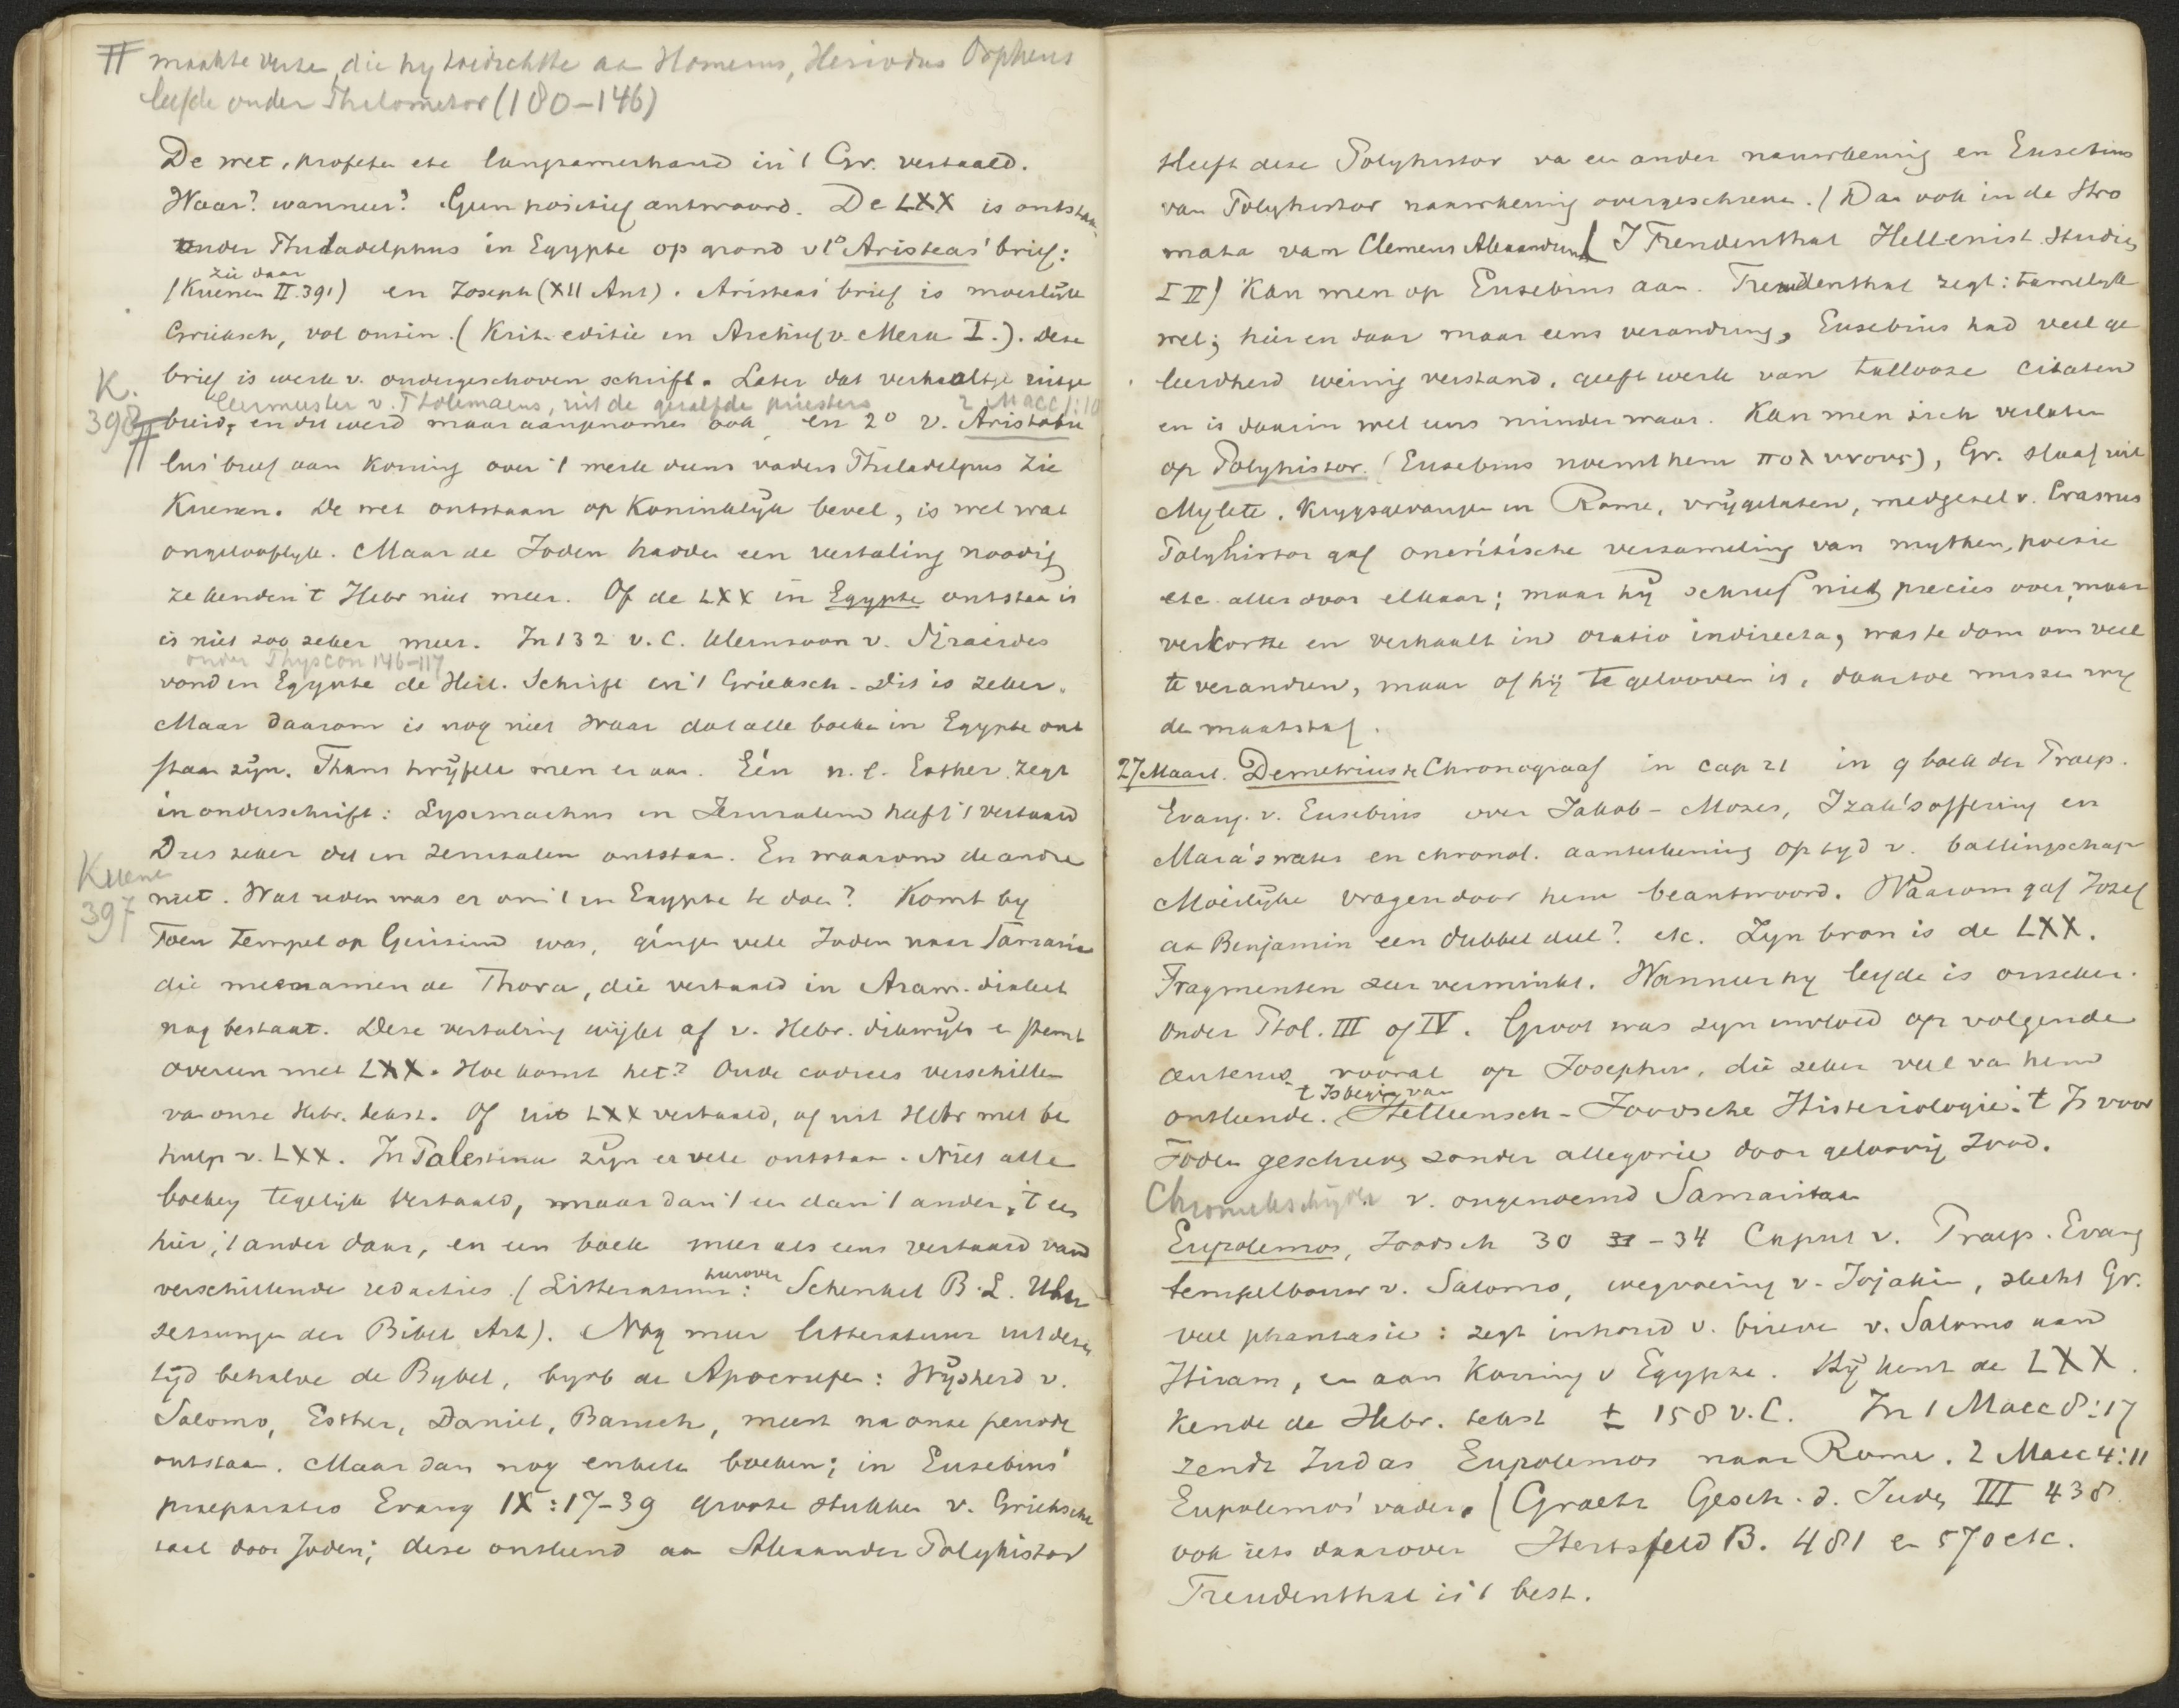 # maakte verse, die hy toedichtte aa Homerus, Hesiodus Orpheus
leefde onder Philometor (180-146)
De wet, profete etc langzamerhand in 't Gr. vertaald.
Waar? wanneer? Geen positief antwoord. De LXX is ontstaan
onder Philadelphus in Egypte op grond v 1° Aristeas' brief:
zie daar
(Kuenen II.391) en Joseph (XII Ant). Aristeas' brief is moeilijk
Grieksch, vol onzin. (Krit. editie in Archief v. Merx I.). Deze
K.
398
brief is werk v. ondergeschoven schrift. Later dat verhaaltje uitge
leermeester v. Ptolemaeus, uit de gezalfde priesters 2 Macc 1:10
# breid, en dit werd maar aangenomen ook, en 2° v. Aristobu
lus' brief aan Koning over 't werk diens vaders Philadelpus zie
Kuenen. De wet ontstaan op Koninklyk bevel, is wel wat
ongelooflyk. Maar de Joden hadden een vertaling noodig
ze kenden 't Hebr niet meer. Of de LXX in Egypte ontstaa is
is niet zoo zeker meer. In 132 v. C. kleinzoon v. Siracides
onder Physcon 146-117
vond in Egypte de Heil. Schrift in 't Grieksch. Dit is zeker.
Maar daarom is nog niet waar dat alle boeke in Egypte ont
staan zijn. Thans twijfele men er aan. Eén n.l. Esther zegt
in onderschrift: Lysimachus in Jeruzalem heeft 't vertaald
Dus zeker dit in Jeruzalem ontstaa. En waarom de andre
Kuenen
397
niet. Wat reden was er om 't in Egypte te doen? Komt by
Toen tempel op Gerizim was, gingen vele Joden naar Samaria
die meenamen de Thora, die vertaald in Aram. dialect
nog bestaat. Deze vertaling wijkt af v. Hebr. dikwijls e stemt
overeen met LXX. Hoe komt het? Oude codices verschillen
va onze Hebr. tekst. Of uit LXX vertaald, of uit Hebr met be
hulp v. LXX. In Palestina zijn er vele ontstaa. Niet alle
boeken tegelijk vertaald, maar dan 't een dan 't ander, 't een
hier, 't ander daar, en een boek meer als eens vertaald vand
verschillende redacties. (Litteratuur hierover: Schenkel B.L. Ueber
setzungen der Bibel Art). Nog meer litteratuur uit deze
tijd behalve de Bybel, byvb de Apocrufen: Wijsheid v.
Salomo, Esther, Daniel, Baruch, meest na onze periode
ontstaan. Maar dan nog enkele boeken; in Eusebius'
praeparatio Evang IX:17-39 groote stukken v. Grieksche
taal door Joden; deze ontleend aa Alexander Polyhistor
Heeft deze Polyhistor va een ander nauwkeurig en Eusebius
van Polyhistor nauwkeurig overgeschreve. (Dan ook in de Stro
mata van Clemens Alexandrinus (J Freudenthal Hellenist. Studien
I II) Kan men op Eusebius aan. Freudenthal zegt: tamelijk
wel; hier en daar maar eens verandring, Eusebius had veel ge
leerdheid weinig verstand, geeft werk van tallooze citaten
en is daarin wel eens minder waar. Kan men zich verlaten
op Polyhistor. (Eusebius noemt hem πολυνους), Gr. slaaf uit
Mylete. Krygsgevangen in Rome, vrijgelaten, medgezel v. Crassus
Polyhistor gaf oneritische verzameling van mythen, poesie
etc. alles door elkaar; maar hij schreef niet precies over, maar
verkortte en verhaalt in oratio indirecta, was te dom om veel
te veranderen, maar of hij te gelooven is, daartoe missen wy
de maatstaf.
27 Maart. Demetrius de Chronograaf in cap 21 in 9 boek der Praep.
Evang. v. Eusebius over Jakob - Mozes, Izak's offering en
Mara's water en chronol. aanteekening op tyd v. ballingschap
Moeilijke vragen door hem beantwoord. Waarom gaf Jozef
aa Benjamin een dubbel deel? etc. Zyn bron is de LXX.
Fragmenten zeer verminkt. Wanneer hy leefde is onzeker.
Onder Ptol. III of IV. Groot was zyn invloed op volgende
auteurs vooral op Josephus, die zeker veel va hem
't Is begin van
ontleende. Helleensch-Joodsche Historiologie. 't Is voor
Joden geschreven zonder allegorie door geloovig Jood.
Chroniekschijver v. ongenoemd Samaritaan
Eupolemos, Joodsch 30 31-34 Caput v. Praep. Evang
tempelbouw v. Salomo, wegvoering v. Jojakin, slecht Gr.
veel phantasie: zegt inhoud v. brieve v. Salomo aan
Hiram, en aan Koning v Egypte. Hij kent de LXX.
Kende de Hebr. tekst ± 158 v.C. In 1 Macc 8:17
zendt Judas Eupolemos naar Rome. 2 Macc 4:11
Eupolemos' vader. (Graetz Gesch. d. Juden III 438.
ook iets daarover Hertsfeld B. 481 en 570 etc.
Freudenthal is 't best.